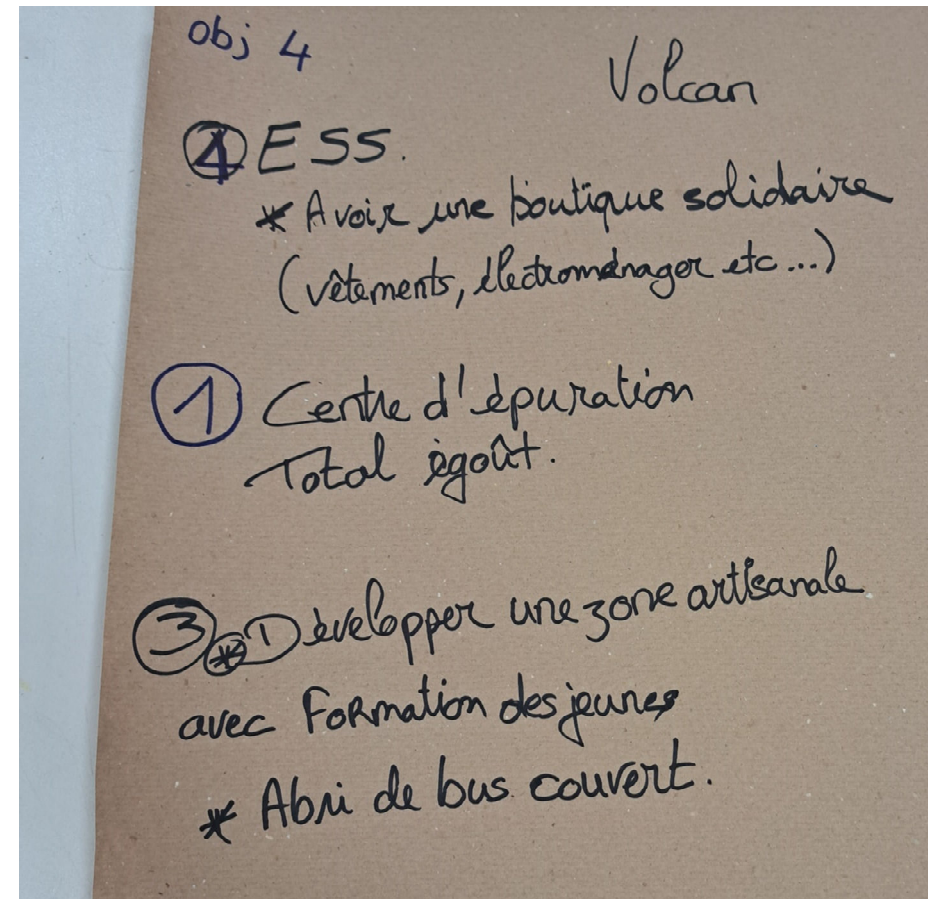 obj 4
Volcan
④ ESS.
* Avoir une boutique solidaire
(vêtements, électroménager etc...)
① Centre d'épuration
Total égoût.
③ * Développer une zone artisanale
avec Formation des jeunes
* Abri de bus couvert.